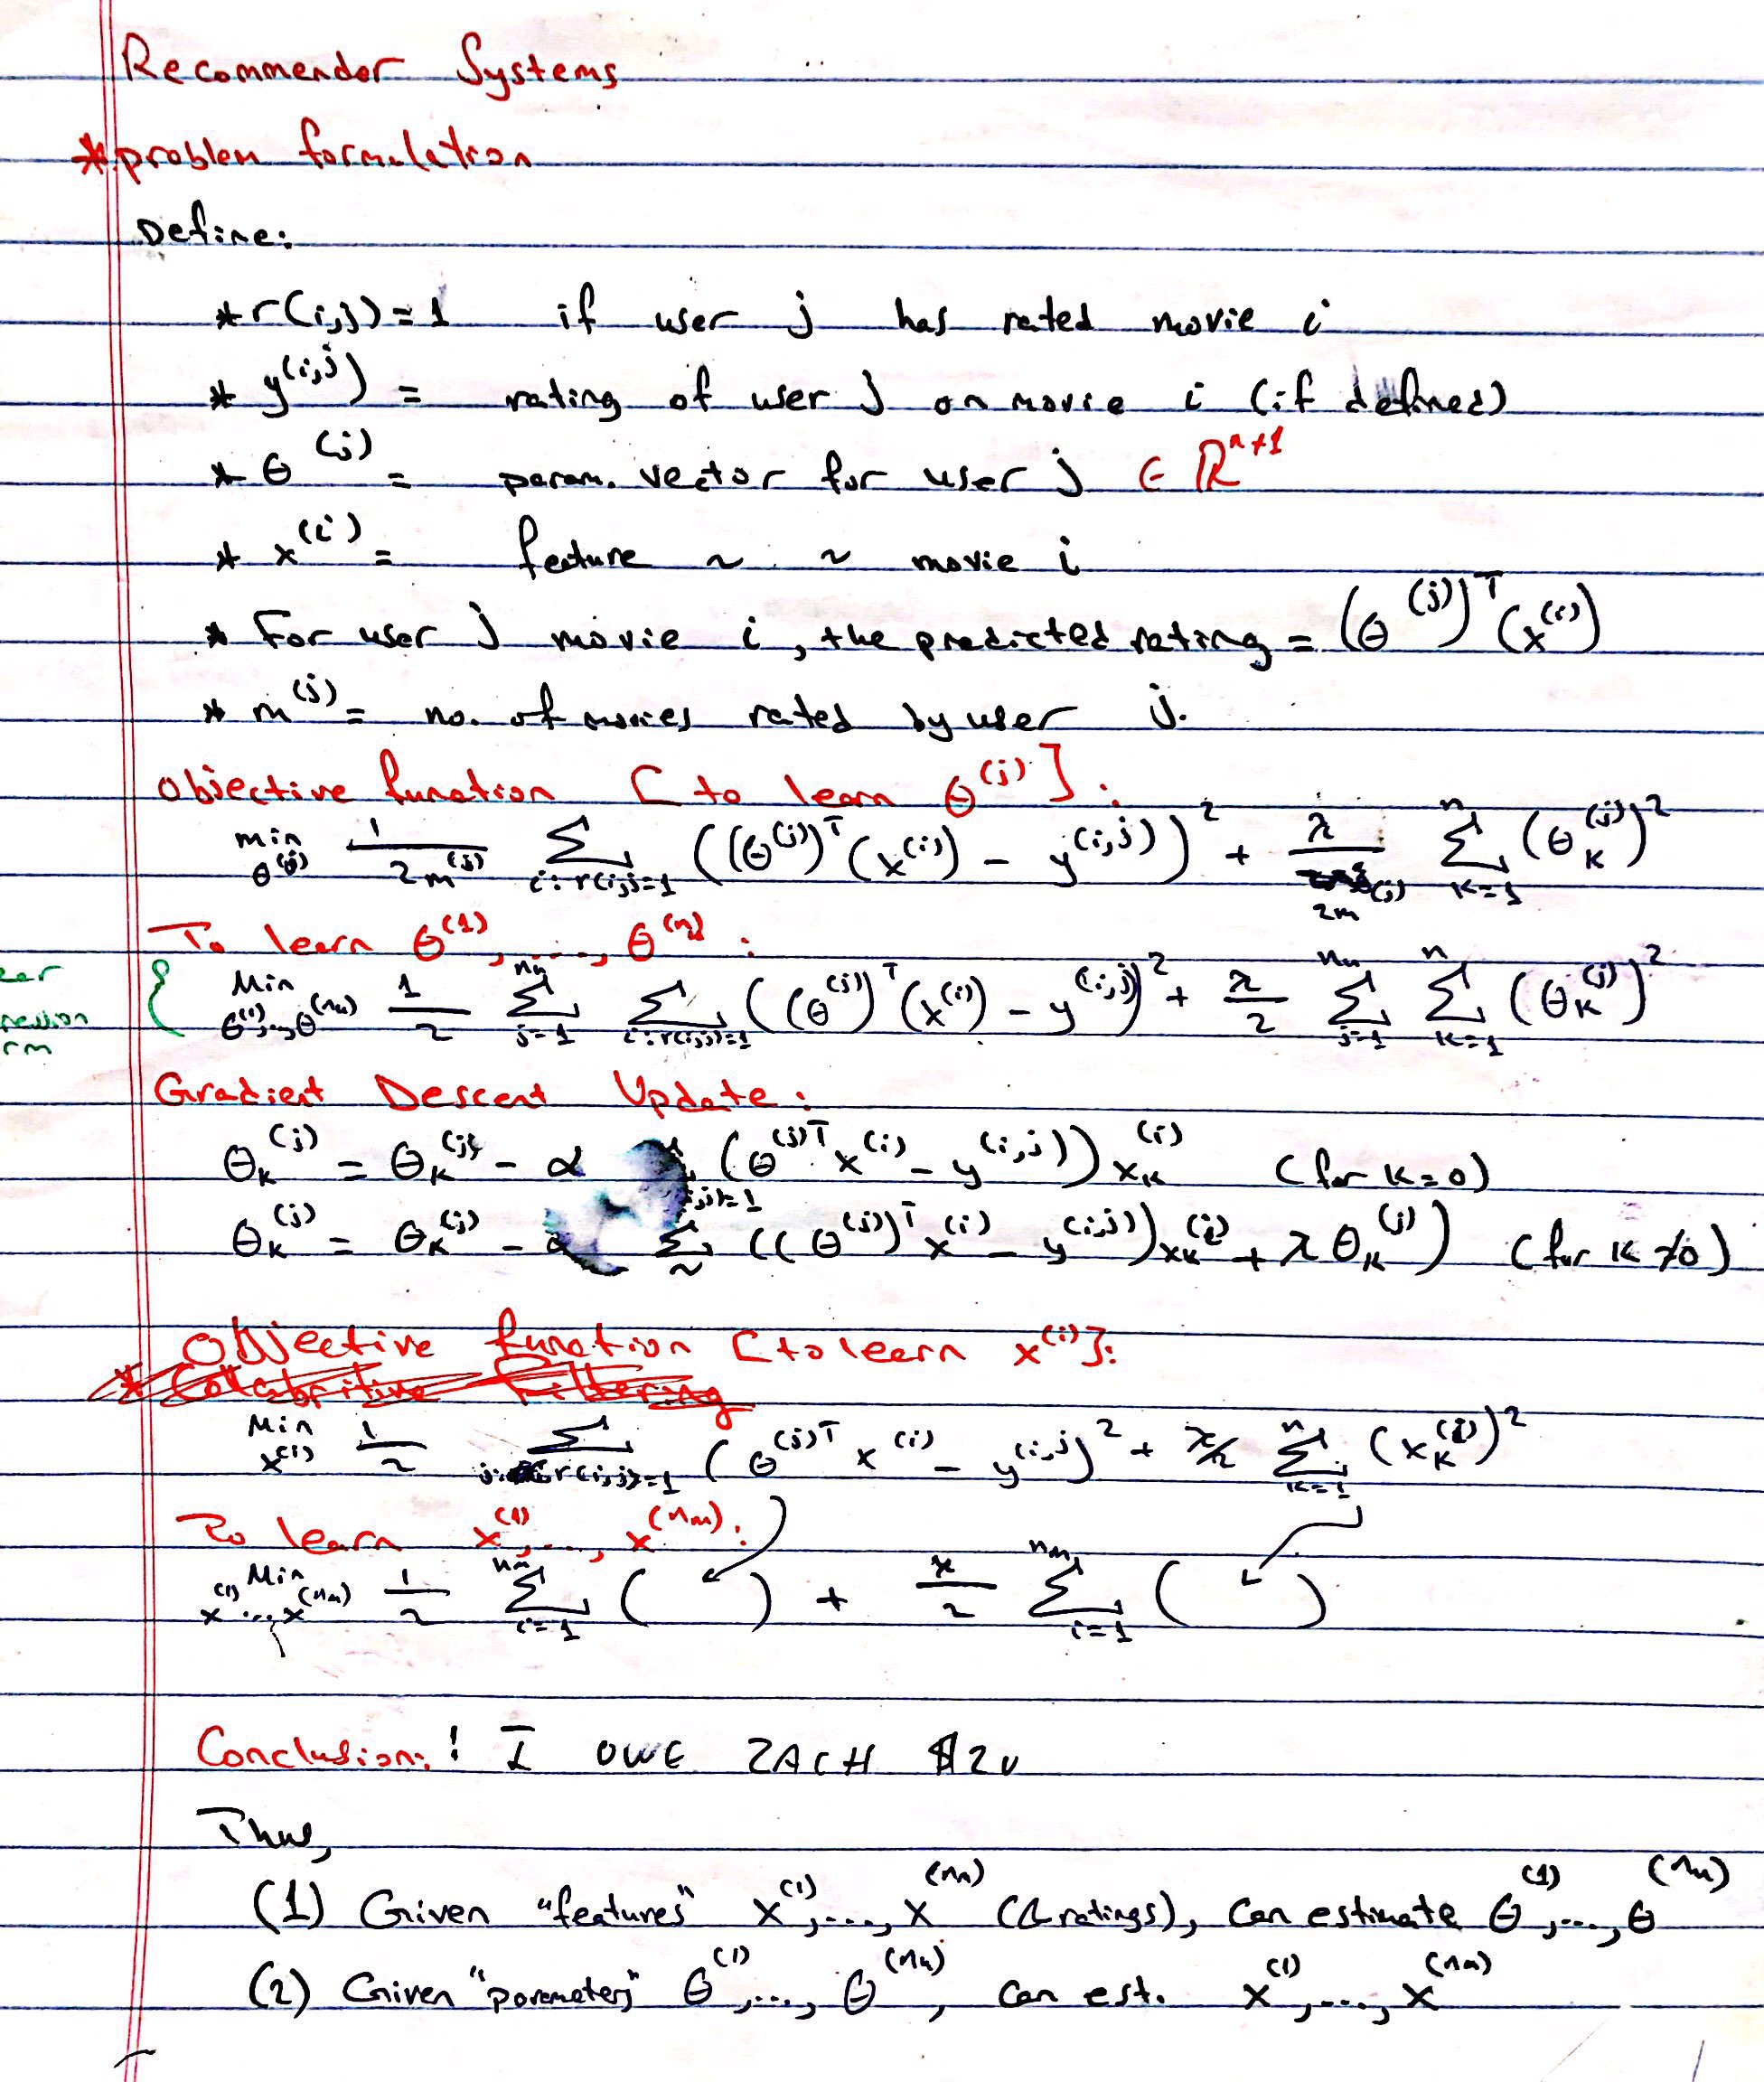 Recommender Systems
* problem formulation
Define:
* r(i,j) = 1 if user j has rated movie i
* y^(i,j) = rating of user j on movie i (if defined)
* θ^(j) = param. vector for user j ∈ ℝ^n+1
* x^(i) = feature ~ ~ movie i
* For user j movie i, the predicted rating = (θ^(j))^T (x^(i))
* m^(j) = no. of movies rated by user j.
Objective function [to learn θ^(j)]:
min θ^(j) 1/2m^(j) Σ i:r(i,j)=1 ((θ^(j))^T (x^(i)) - y^(i,j))^2 + λ/2m^(j) Σ k=1 n (θ_k^(j))^2
To learn θ^(1), ..., θ^(nu):
{ Min θ^(1),..,θ^(nu) 1/2 Σ j=1 nu Σ i:r(i,j)=1 ((θ^(j))^T (x^(i)) - y^(i,j))^2 + λ/2 Σ j=1 nu Σ k=1 n (θ_k^(j))^2
Gradient Descent Update:
θ_k^(j) = θ_k^(j) - α ,j)=1 (θ^(j)T x^(i) - y^(i,j))) x_k^(i) (for k=0)
θ_k^(j) = θ_k^(j) - α Σ ~ ((θ^(j))^T x^(i) - y^(i,j)) x_k^(i) + λ θ_k^(j)) (for k≠0)
Objective function [to learn x^(i)]:
* Collabritive Filtering
Min x^(i) 1/2 Σ j:r(i,j)=1 (θ^(j)T x^(i) - y^(i,j))^2 + λ/2 Σ k=1 n (x_k^(i))^2
To learn x^(1), ..., x^(nm):
Min x^(1)...x^(nm) 1/2 Σ i=1 nm ( ) + λ/2 Σ i=1 nm ( )
Conclusion:! I OWE ZACH $20
Thus,
(1) Given "features" x^(1), ..., x^(nm) (& ratings), can estimate θ^(1), ..., θ^(nu)
(2) Given "parameters" θ^(1), ..., θ^(nu), can est. x^(1), ..., x^(nm)